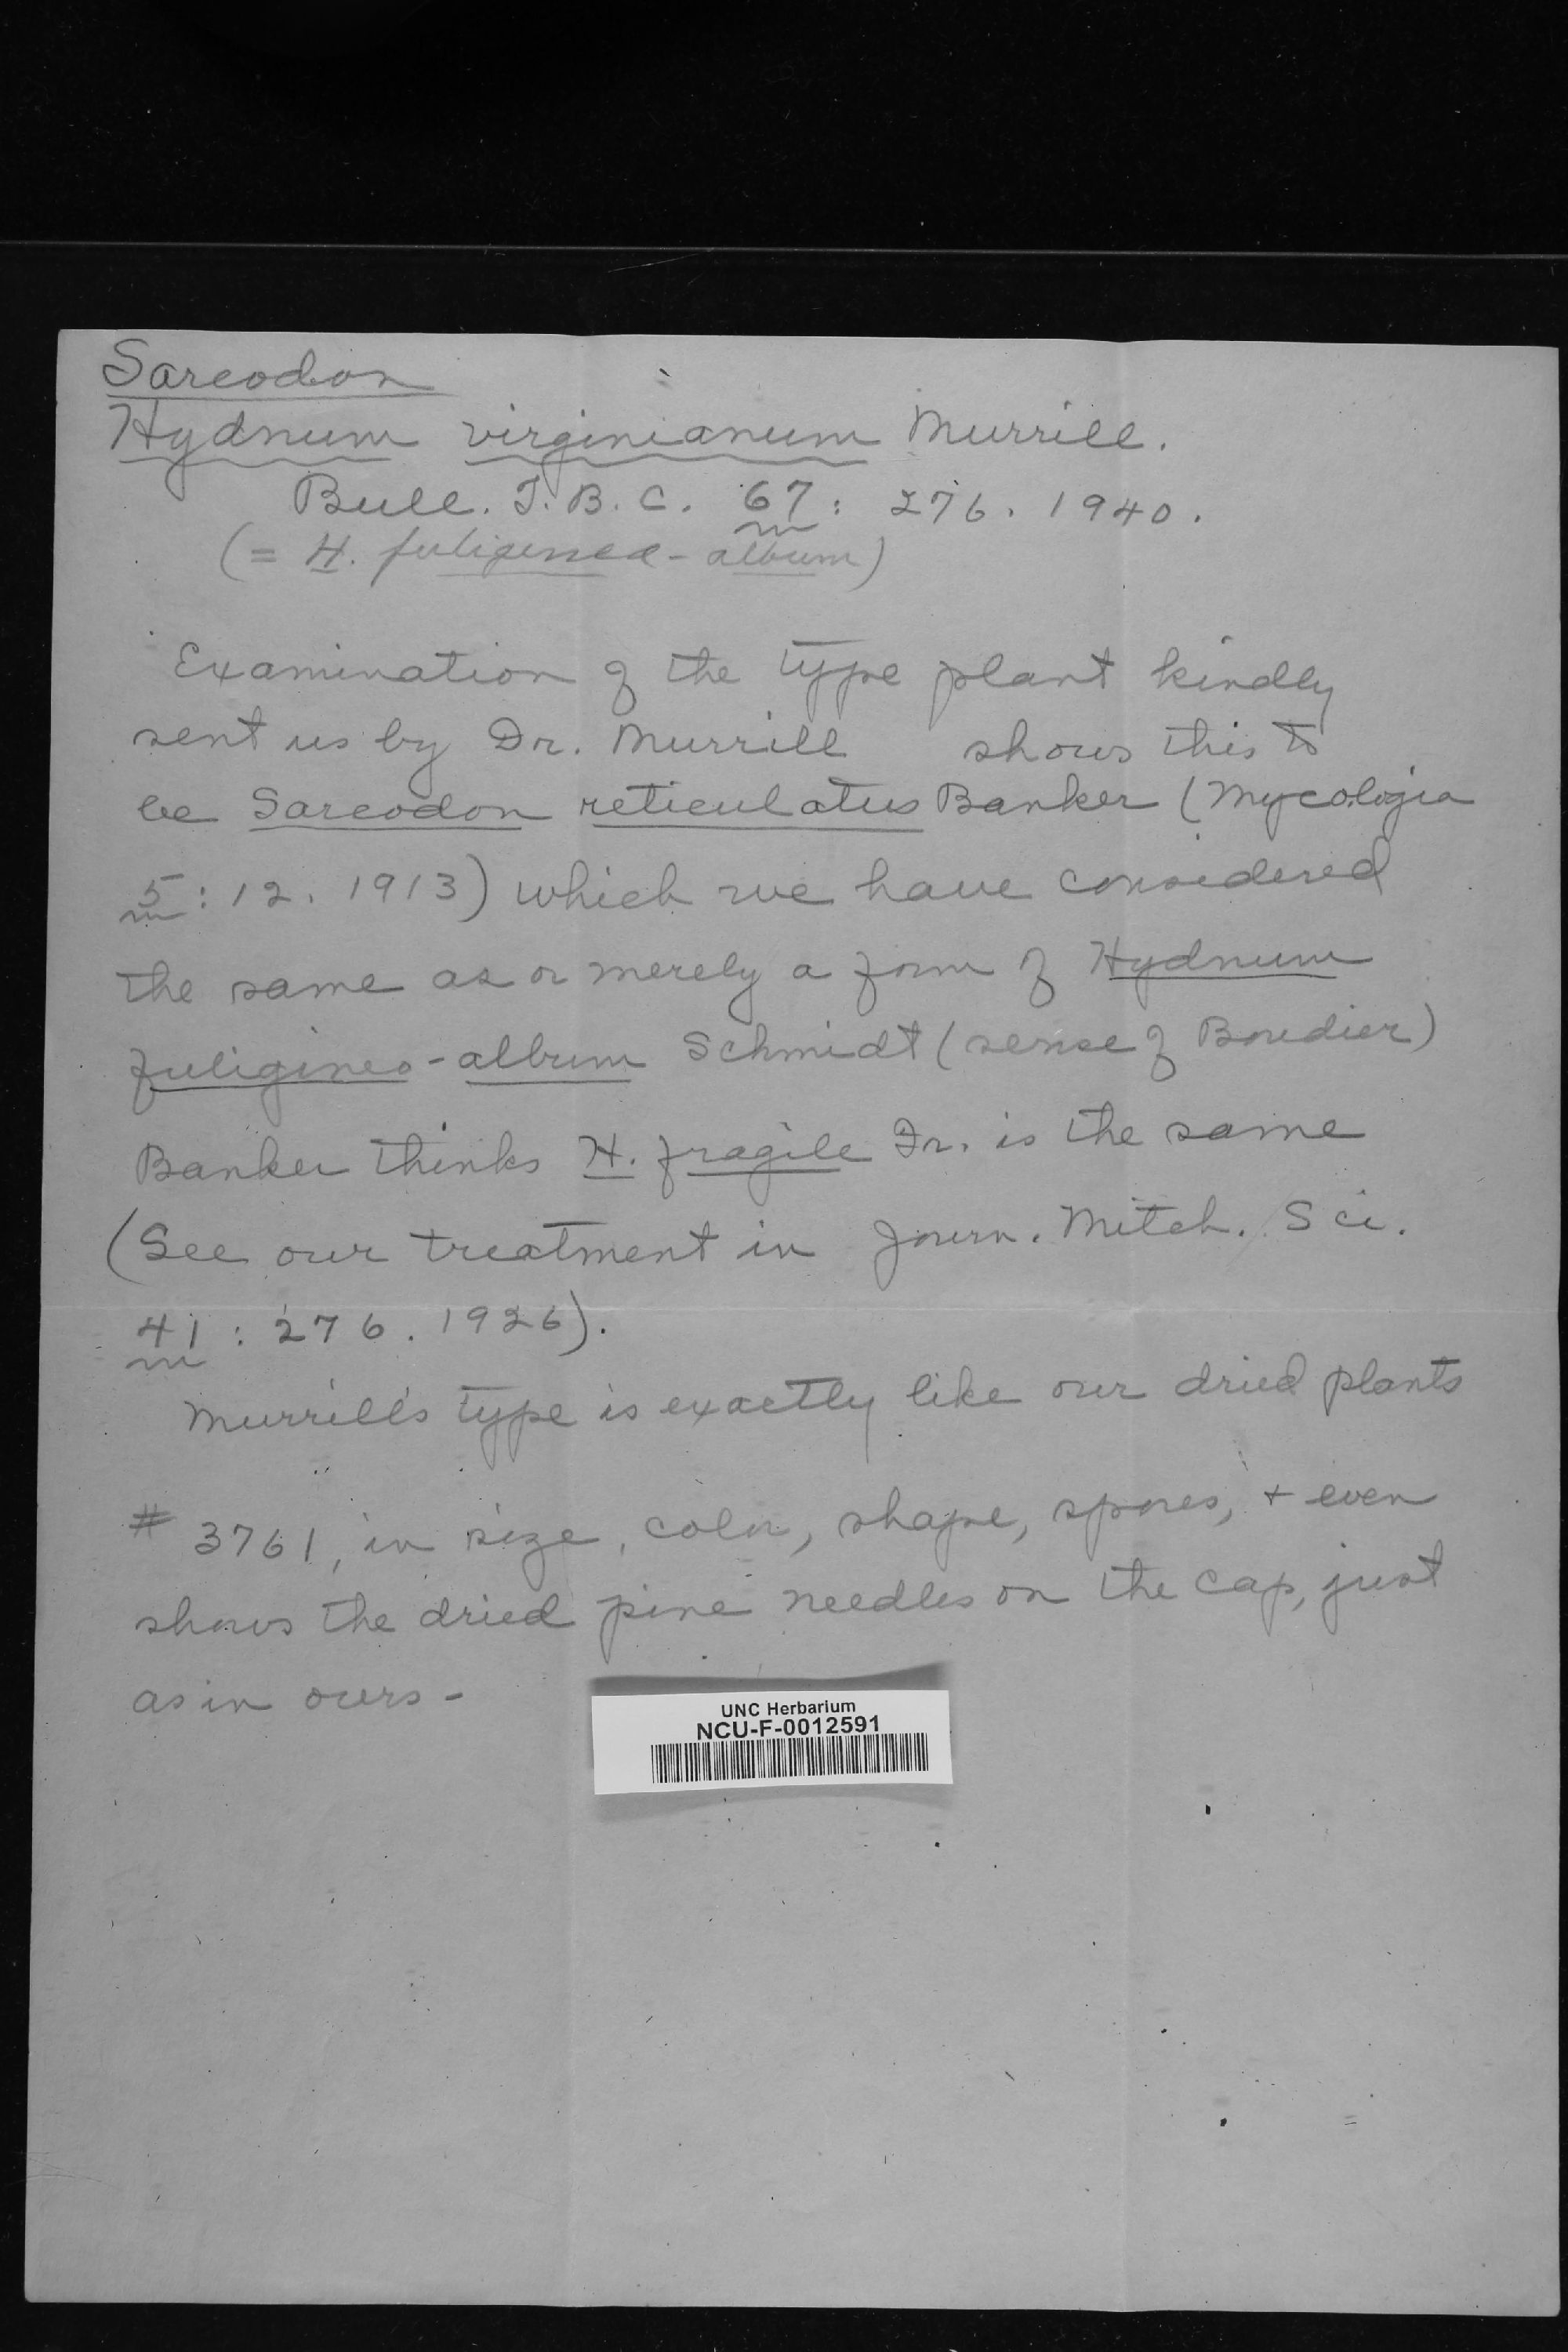 Sarcodon
Hydnum virginianum Murrill.
Bull. T.B.C. 67: 276. 1940.
(= H. fuligineo-album)
Examination of the type plant kindly
sent us by Dr. Murrill shows this to
be Sarcodon reticulatus Banker (Mycologia
5: 12. 1913) which we have considered
the same as or merely a form of Hydnum
fuligineo-album Schmidt (sense of Boudier)
Banker thinks H. fragile Fr. is the same
(See our treatment in Journ. Mitch. Sci.
41: 276. 1926).
Murrill's type is exactly like our dried plants
# 3761, in size, color, shape, spores, + even
shows the dried pine needles on the cap, just
as in ours -
UNC Herbarium
NCU-F-0012591